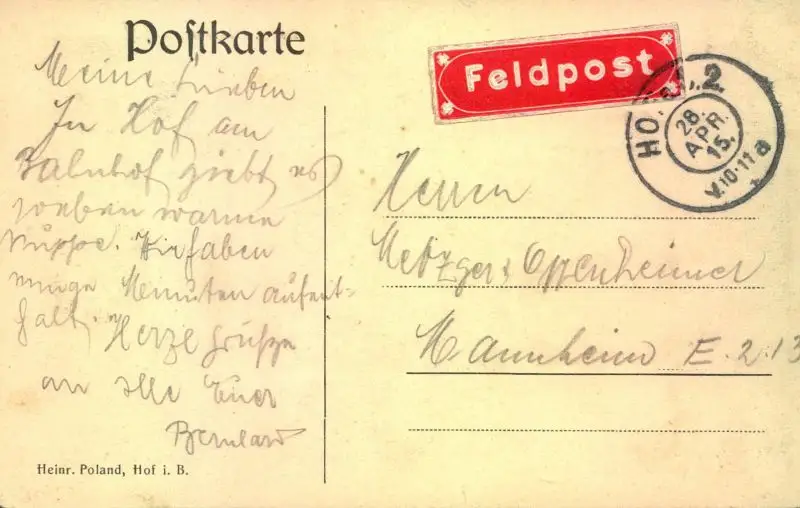 Postkarte
Meine Lieben
In Hof am
Bahnhof giebt es
soeben warme
Suppe. Wir haben
einige Minuten Aufent-
halt. Herzl. Grüße
an alle Euer
Bernhard
Heinr. Poland, Hof i. B.
Feldpost
HOF 2.
28.
APR.
15.
V.10-11 a
Herren
Metzger & Oppenheimer
Mannheim E. 2. 13